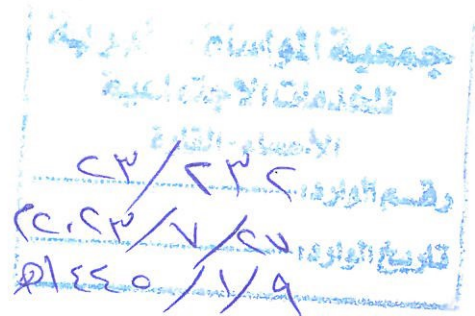 جمعية المواساة
للخدمات الاجتماعية
الأحساء - القارة
رقم الوارد: ٢٣/٢٣٢
تاريخ الوارد: ٢٠٢٣/٧/٢٧م
١٤٤٥/١/٩هـ